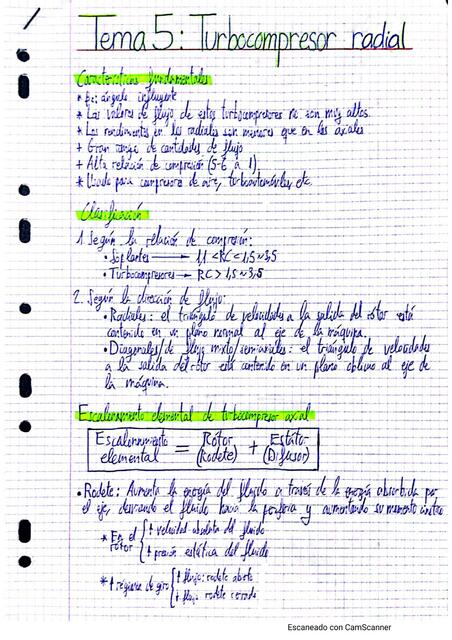 Tema 5: Turbocompresor radial
Características fundamentales
* β₂: ángulo influyente
* Los valores de flujo de estos turbocompresores no son muy altos.
* Los rendimientos en los radiales son menores que en los axiales
+ Gran rango de cantidades de flujo
+ Alta relación de compresión (5-6 a 1)
* Usado para compresores de aire, turboautomóviles, etc.
Clasificación
1. Según la relación de compresión:
• Soplantes → 1,1 < RC < 1,5~3,5
• Turbocompresores → RC > 1,5~3,5
2. Según la dirección de flujo:
• Radiales: el triángulo de velocidades a la salida del rotor está
contenido en un plano normal al eje de la máquina.
• Diagonales/de flujo mixto/semiaxiales: el triángulo de velocidades
a la salida del rotor está contenido en un plano oblicuo al eje de
la máquina.
Escalonamiento elemental de turbocompresor axial
Escalonamiento elemental = Rotor (Rodete) + Estátor (Difusor)
• Rodete: Aumenta la energía del fluido a través de la energía absorbida por
el eje, desviando el fluido hacia la periferia y aumentando su momento cinético
* En el rotor { ↑ velocidad absoluta del fluido
↑ presión estática del fluido
* ↑ régimen de giro { ↑ flujo: rodete abierto
↑ flujo rodete cerrado
Escaneado con CamScanner